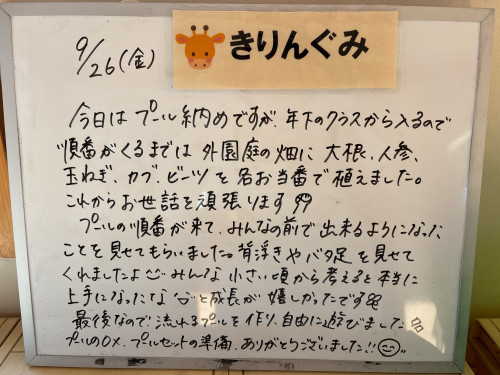 9/26(金)
きりんぐみ
今日は プール納めですが、年下のクラスから入るので
順番がくるまでは 外園庭の畑に 大根、人参、
玉ねぎ、カブ、ビーツ を 各お当番で植えました。
これからお世話を頑張ります
プールの順番が来て、みんなの前で出来るようになった
ことを見せてもらいました。背浮きやバタ足を見せて
くれましたよ みんな 小さい頃から考えると本当に
上手になったな と成長が 嬉しかったです
最後なので 流れるプールを 作り、自由に遊びました
プールの○×、プールセットの準備、ありがとうございました!!